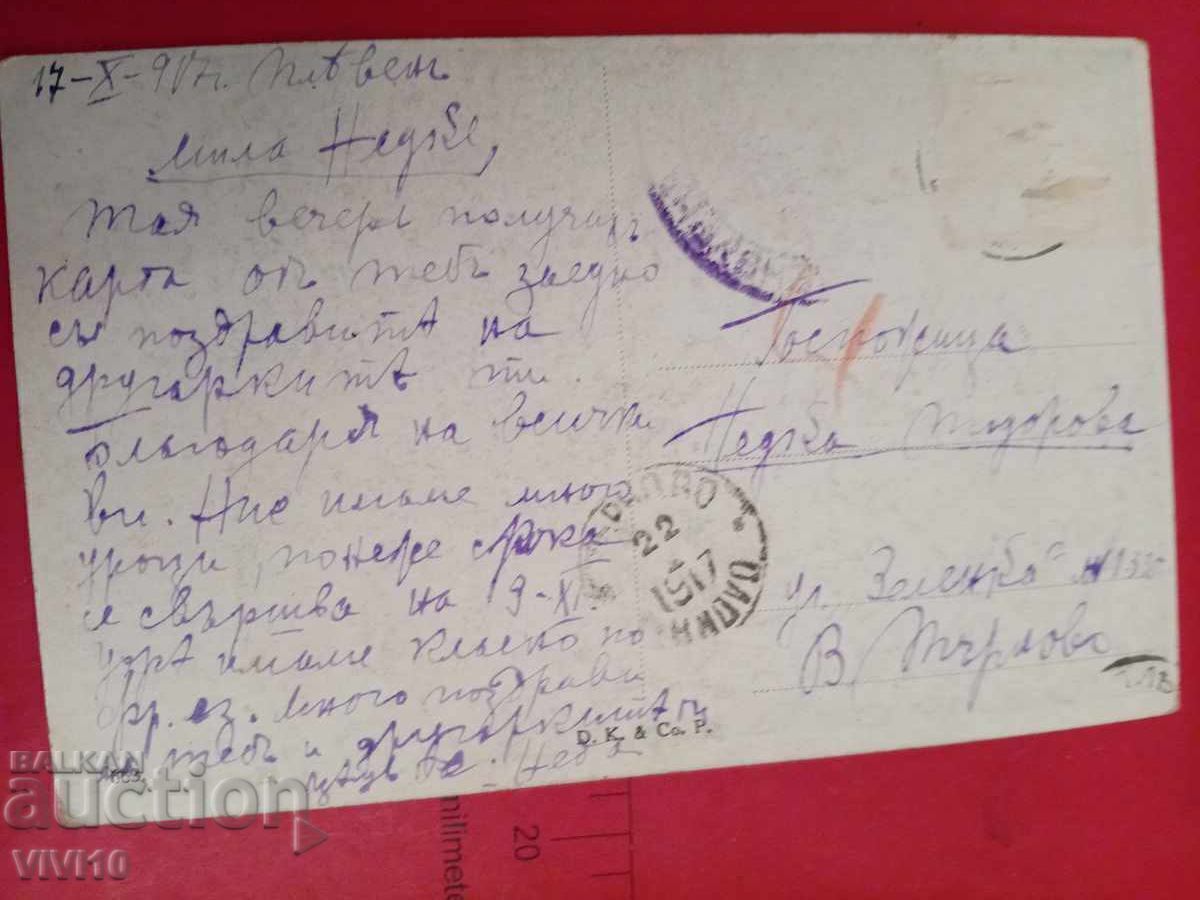 17-X-917г. Плѣвен
Мила Недке,
Тая вечерь получихъ
карта отъ тебъ заедно
съ поздравитѣ на
другаркитѣ ти.
Благодаря на всички
ви. Ние имаме много
уроци, понеже срока
се свършва на 9-XI.
имаме класно по
фр. ез. Много поздрави
на тебъ и другаркитѣ ти
Госпожица
Недка Тодорова
ул. Зеленка №
В. Търново
22
X
1917
D. K. & Co. P.
BALKAN
auction
VIVI10
20
milimete